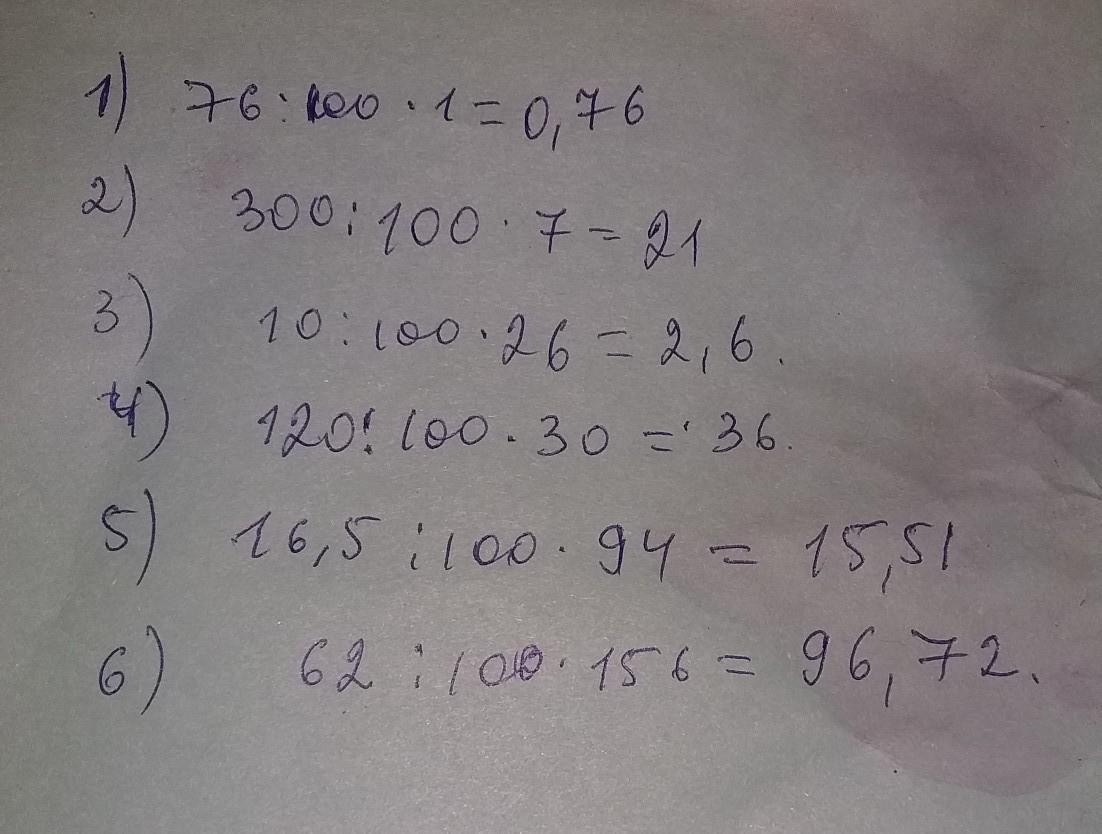 1) 76 : 100 · 1 = 0,76
2) 300 : 100 · 7 = 21
3) 10 : 100 · 26 = 2,6.
4) 120 : 100 · 30 = 36.
5) 16,5 : 100 · 94 = 15,51
6) 62 : 100 · 156 = 96,72.